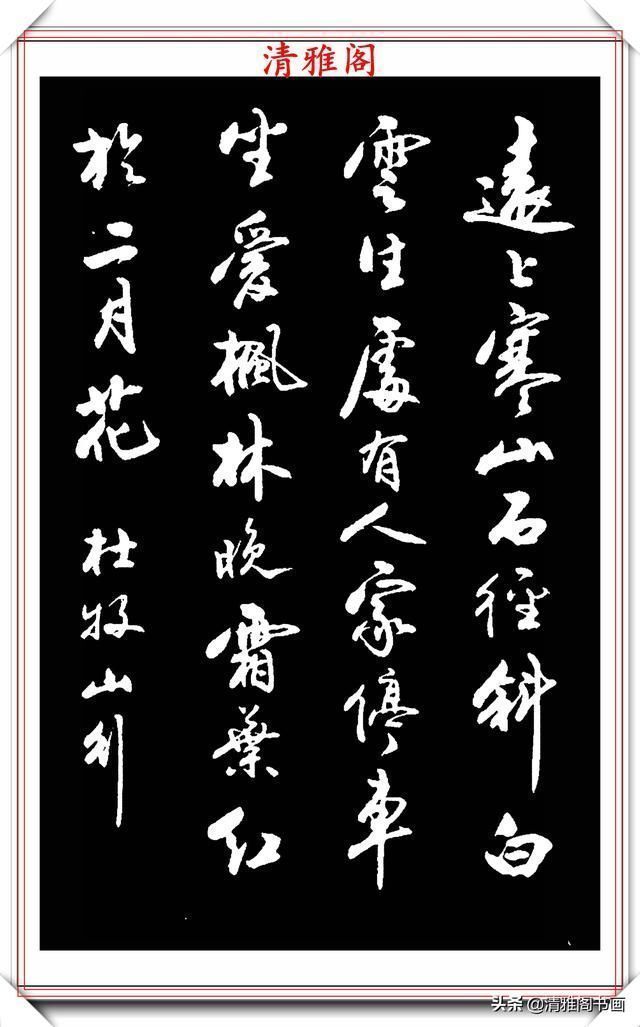 清雅阁
遠上寒山石徑斜白
雲生處有人家停車
坐愛楓林晚霜葉紅
於二月花 杜牧山行
头条 @清雅阁书画